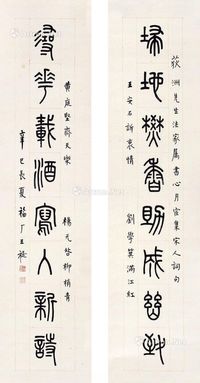 荻洲先生法家屬書心月宦集宋人詞句
埽地燓香助成幽致
王安石訴衷情
劉學箕滿江紅
黃庭堅齊天樂
楊无咎柳梢青
尋花載酒寫入新詩
辛巳長夏福厂王禔